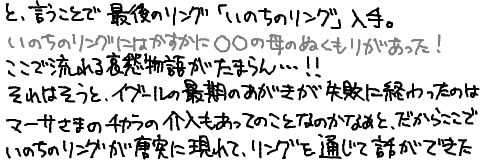 と、言うことで最後のリング「いのちのリング」入手。
いのちのリングにはかすかに○○の母のぬくもりがあった!
ここで流れる哀愁物語がたまらん…!!
それはそうと、イブールの最期のあがきが失敗に終わったのは
マーサさまのチカラの介入もあってのことなのかなぁと、だからここで
いのちのリングが唐突に現れて、リングを通じて話ができた